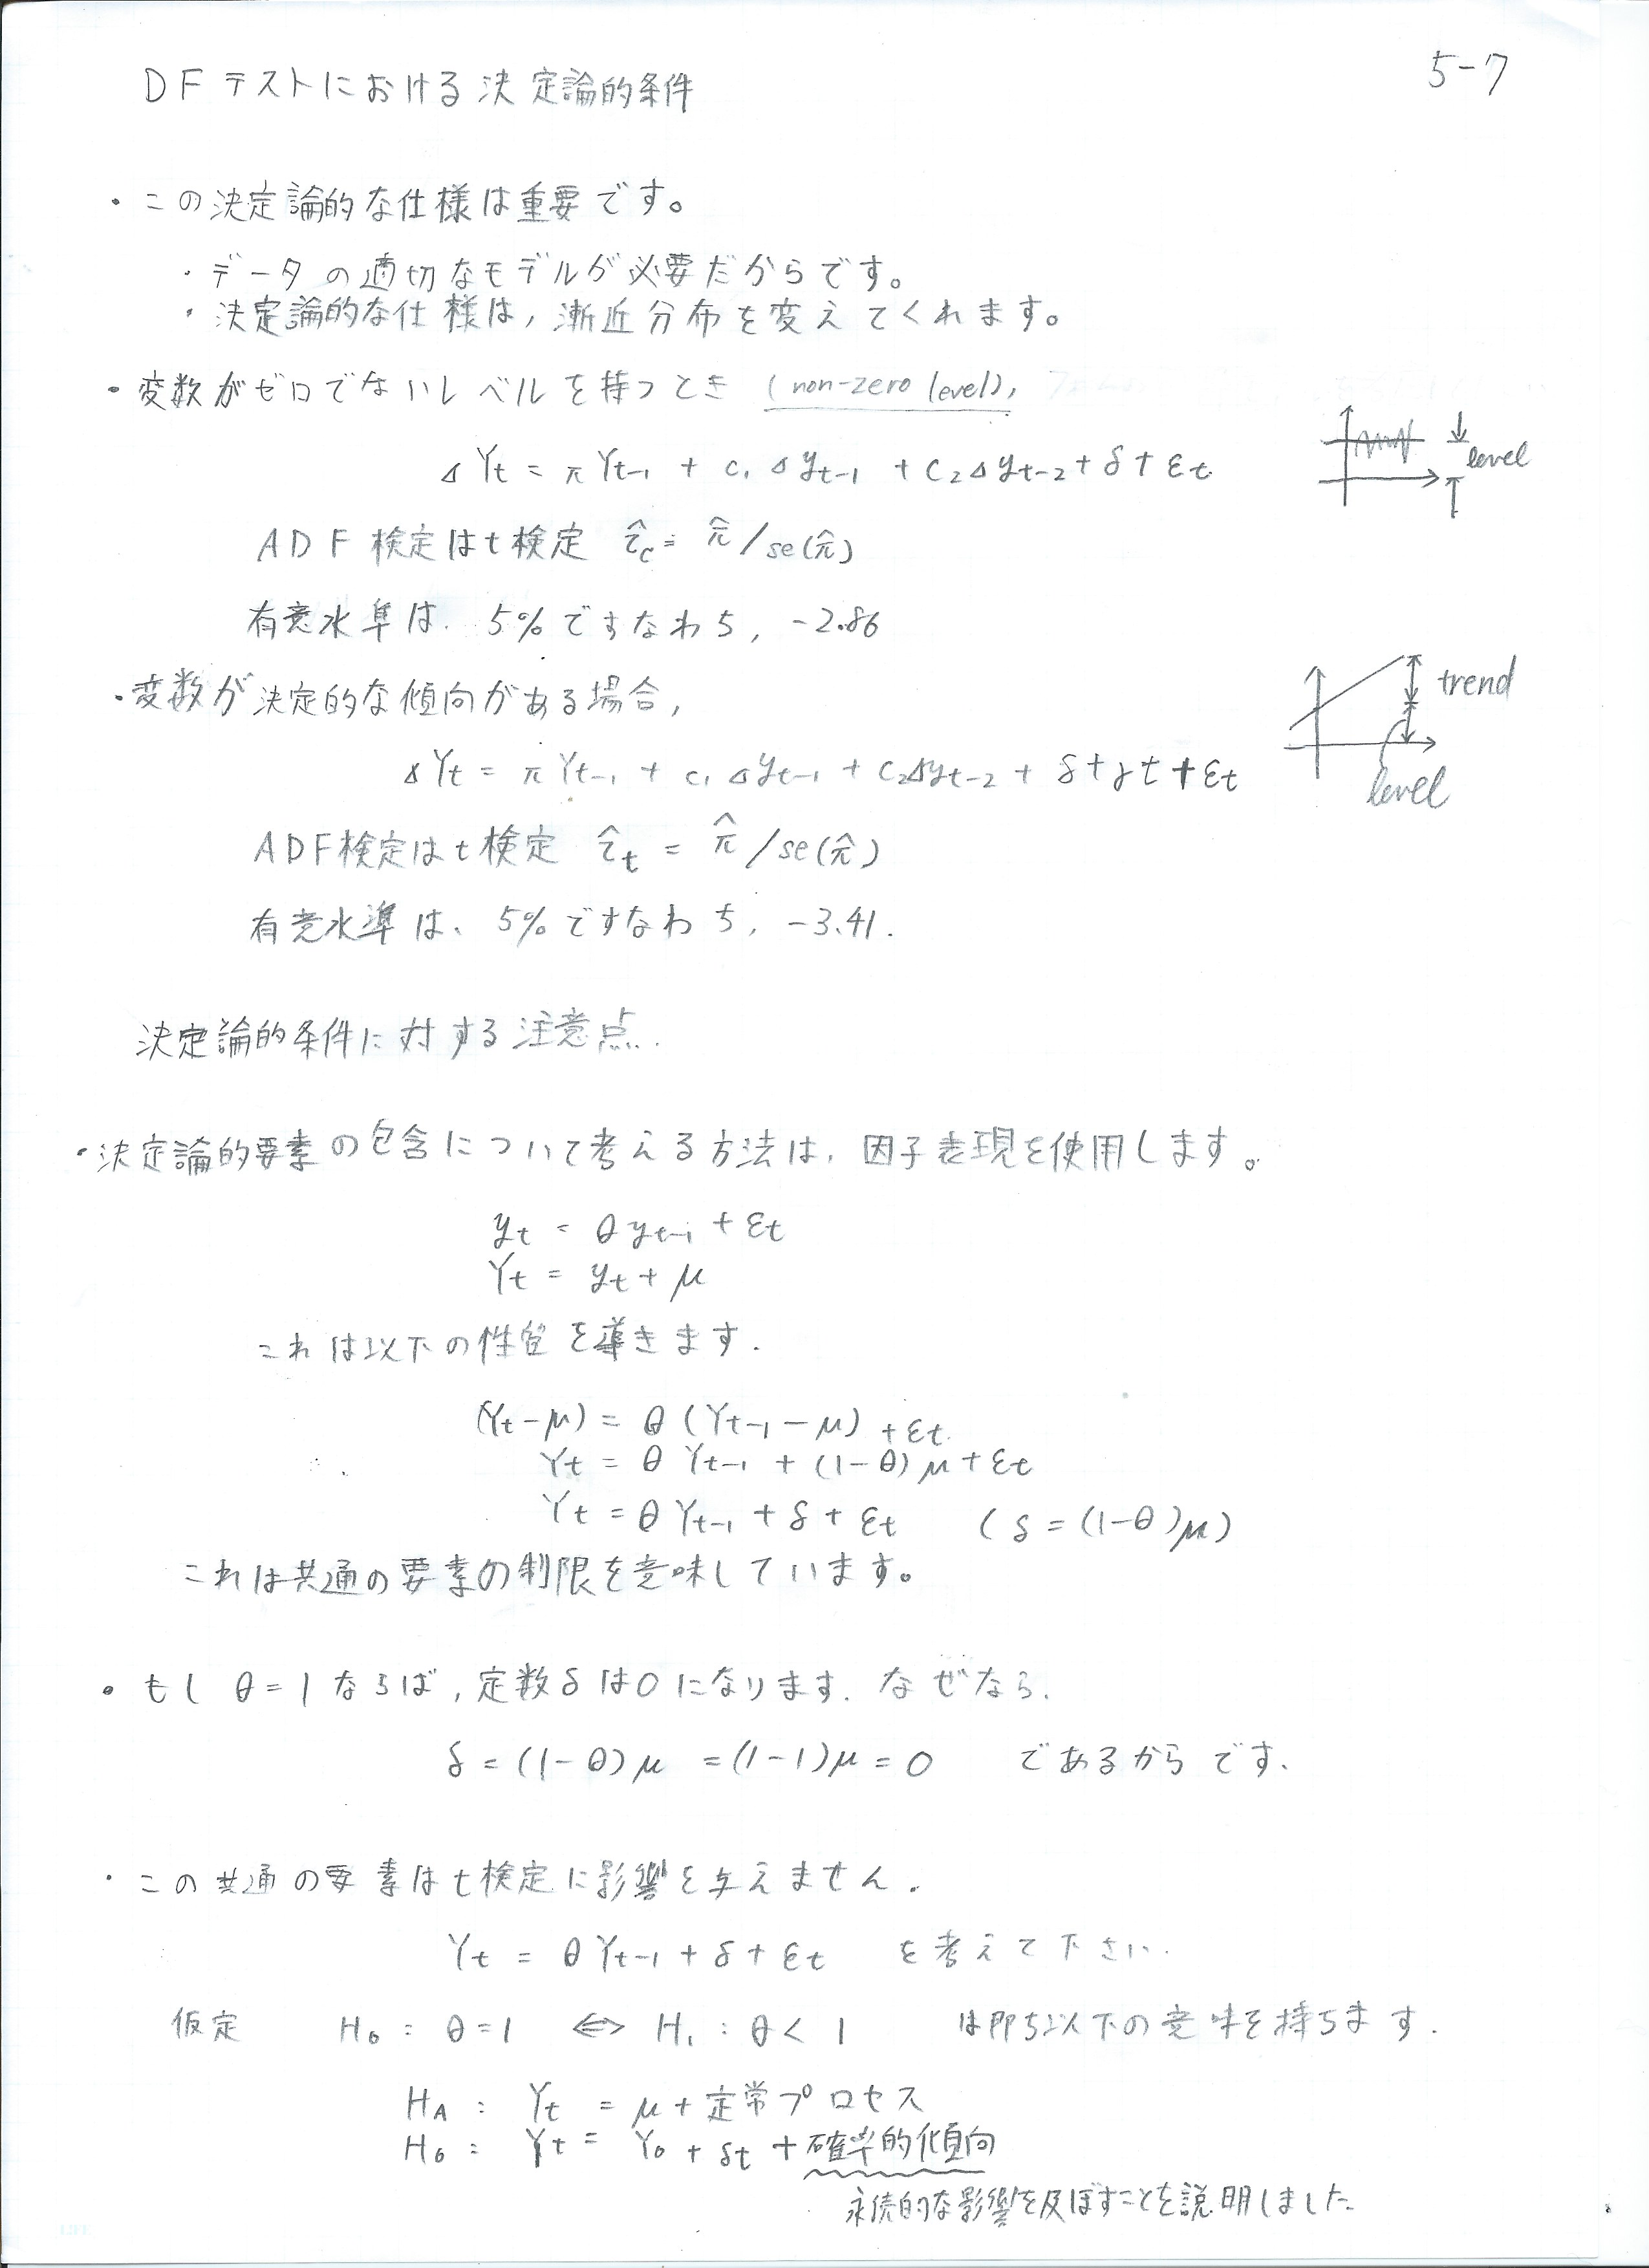 5-7
DFテストにおける決定論的条件
・この決定論的な仕様は重要です。
・データの適切なモデルが必要だからです。
・決定論的な仕様は,漸近分布を変えてくれます。
・変数がゼロでないレベルを持つとき (non-zero level),
ΔYt = πYt-1 + c1Δyt-1 + c2Δyt-2 + δ + εt
level
ADF検定はt検定 τ̂c = π̂/se(π̂)
有意水準は. 5%ですなわち, -2.86
・変数が決定的な傾向がある場合,
trend
ΔYt = πYt-1 + c1Δyt-1 + c2Δyt-2 + δ + γt + εt
level
ADF検定はt検定 τ̂t = π̂/se(π̂)
有意水準は、5%ですなわち, -3.41.
決定論的条件に対する注意点.
・決定論的要素の包含について考える方法は,因子表現を使用します。
yt = θyt-1 + εt
Yt = yt + μ
これは以下の性質を導きます.
(Yt-μ) = θ(Yt-1-μ) + εt.
Yt = θYt-1 + (1-θ)μ + εt
Yt = θYt-1 + δ + εt (δ = (1-θ)μ)
これは共通の要素の制限を意味しています。
・もしθ=1ならば,定数δは0になります. なぜなら.
δ = (1-θ)μ = (1-1)μ = 0 であるからです.
・この共通の要素はt検定に影響を与えません.
Yt = θYt-1 + δ + εt を考えて下さい.
仮定 H0 : θ=1 ⇔ H1 : θ<1 は即ち以下の意味を持ちます.
HA : Yt = μ + 定常プロセス
H0 : Yt = Y0 + δt + 確率的傾向
永続的な影響を及ぼすことを説明しました